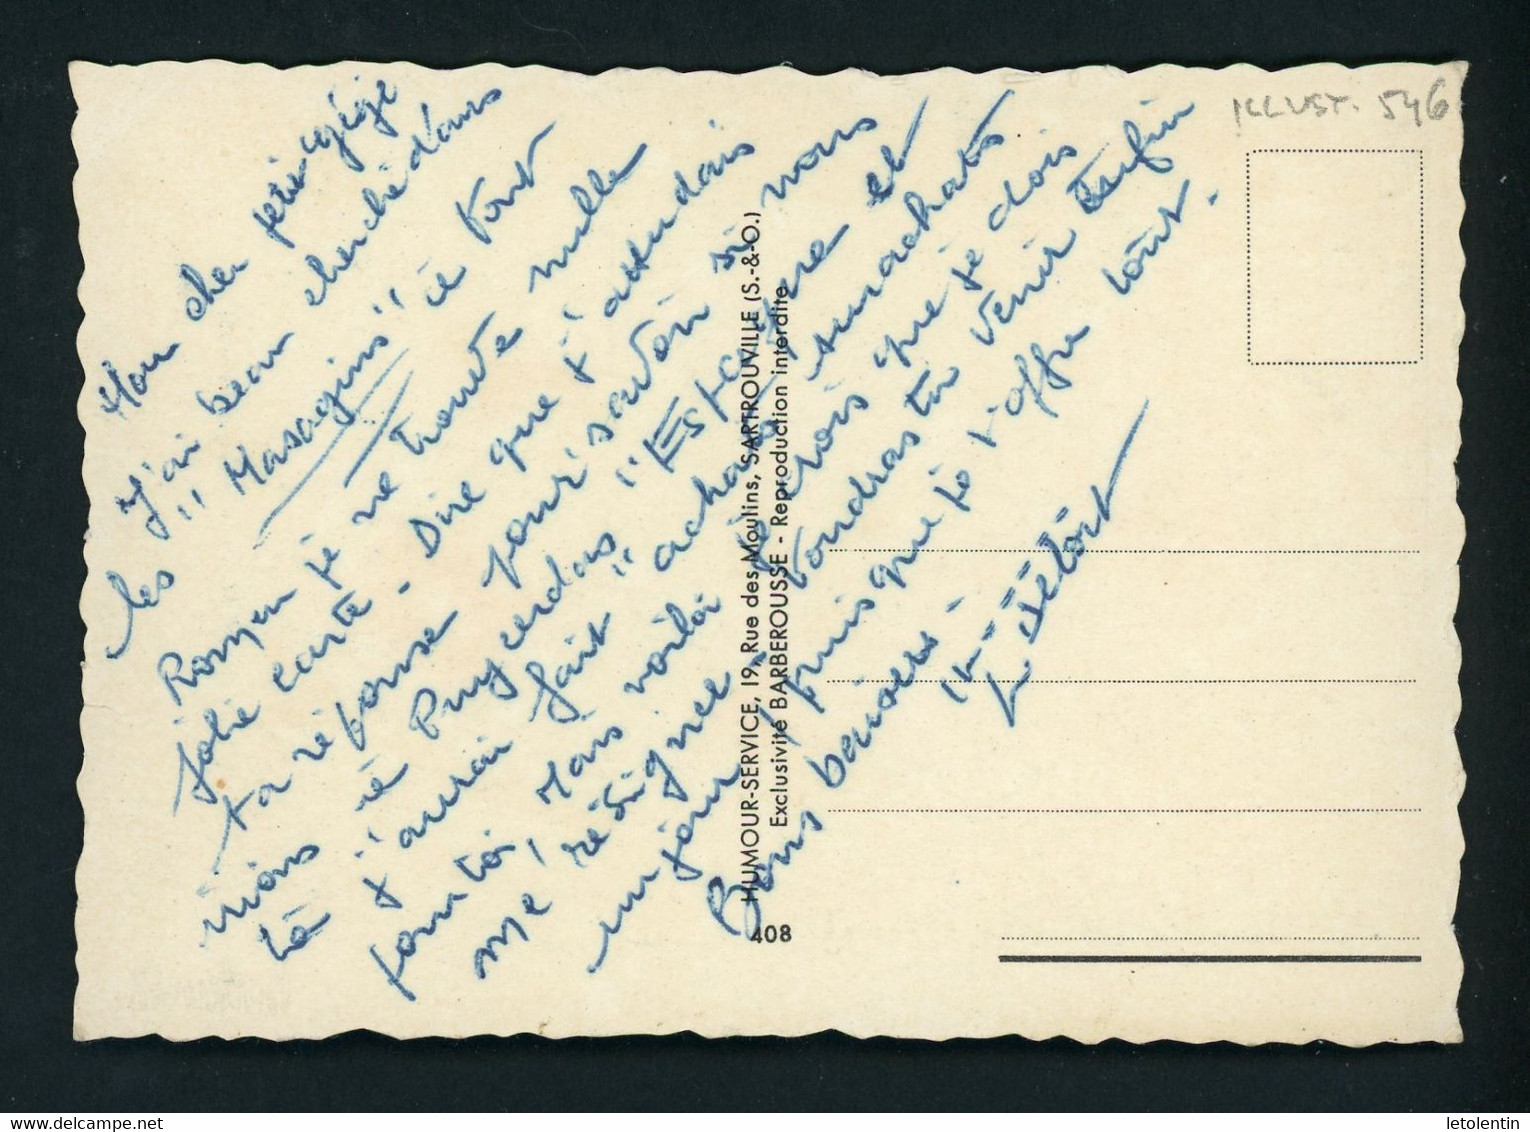 Mon cher petit gégé
J'ai beau cherché dans
les " Masagins" à tout
Rompu je ne trouve mille
jolie carte - Dire que j'attendais
ta réponse pour savoir si nous
irions à Puycerda, "Espagne et
là j'aurai fait achats surachats
pour toi, Mais voilà je crois que je dois
me résigner. Voudras tu venir enfin
un jour, puisque je t'offre tout.
Bons baisers.
ILLUST. 546
HUMOUR-SERVICE, 19, Rue des Moulins, SARTROUVILLE (S.-&-O.)
Exclusivité BARBEROUSSE - Reproduction interdite
408
letolentin